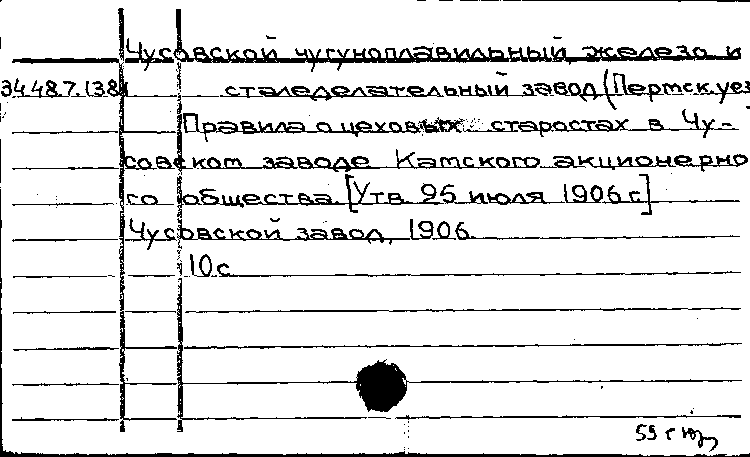 Чусовской чугуноплавильный, железо и
34.48.7.138 сталеделательный завод (Пермск.уез
Правила о цеховых старостах в Чу-
совском заводе Камского акционерно
го общества. [Утв. 25 июля 1906 г.]
Чусовской завод, 1906.
10 с.
59 г